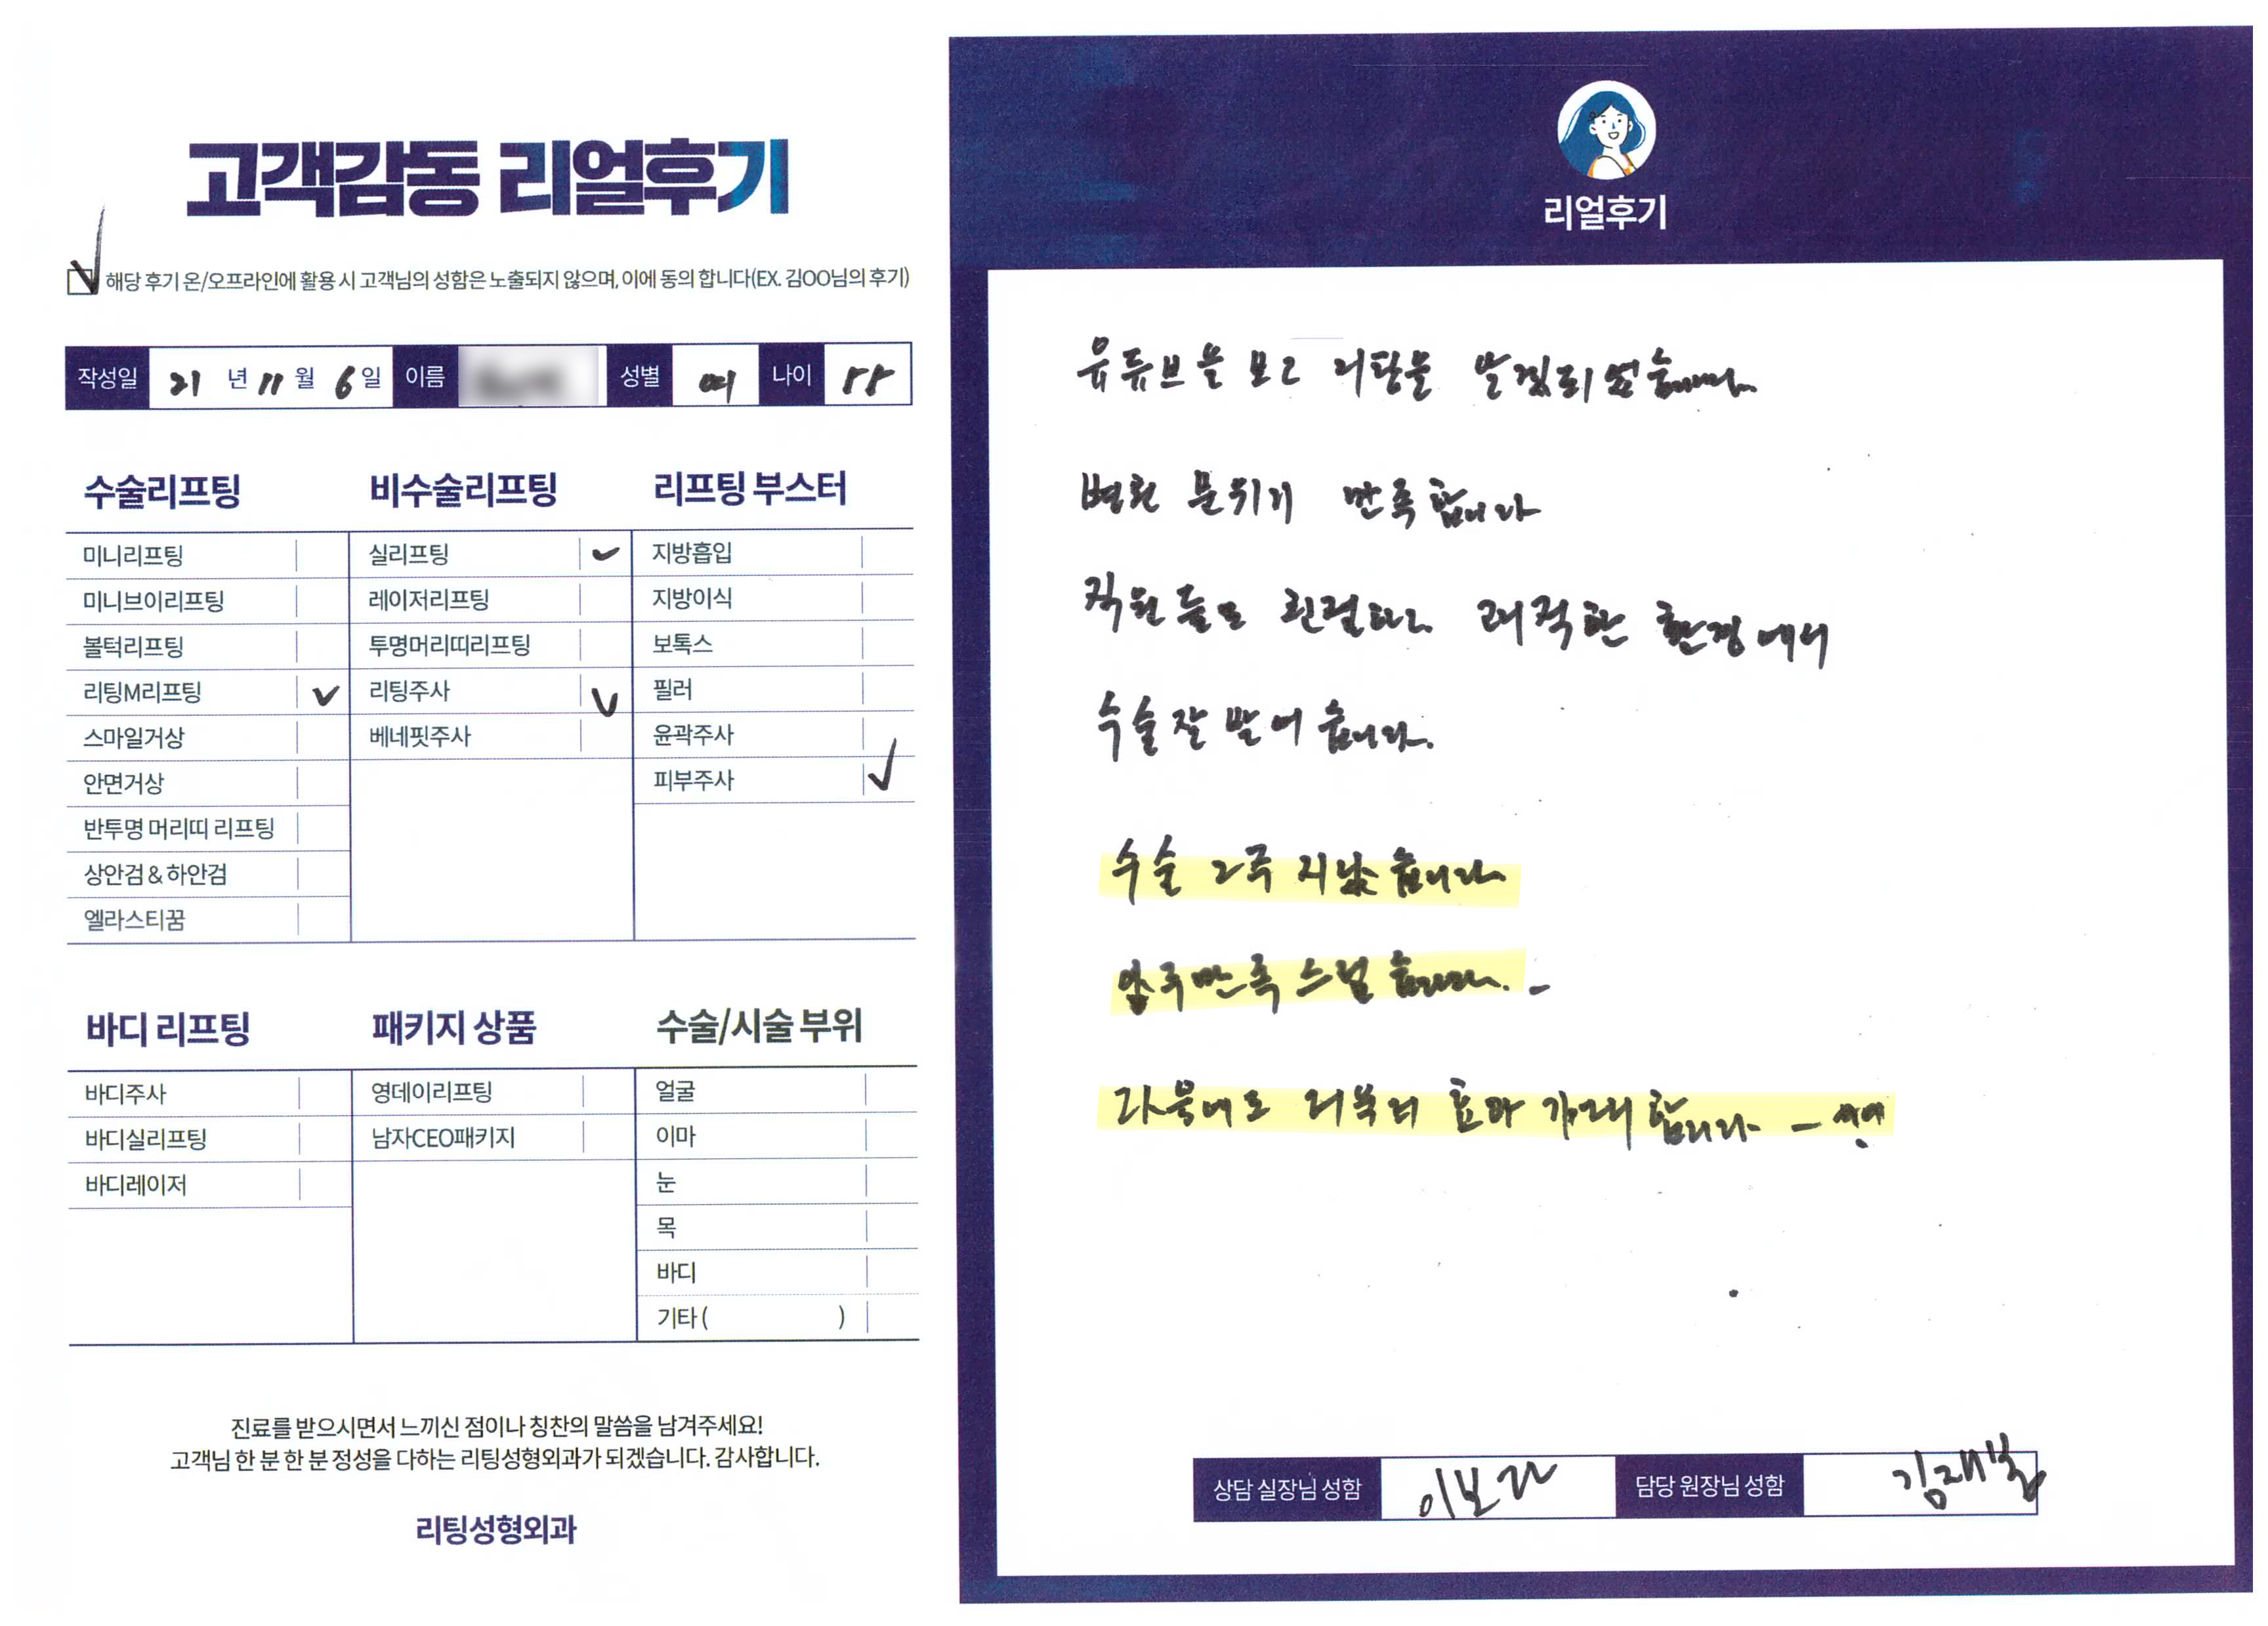 고객감동 리얼후기
해당 후기 온/오프라인에 활용 시 고객님의 성함은 노출되지 않으며, 이에 동의 합니다(EX. 김OO님의 후기)
작성일 21 년 11 월 6 일 이름 성별 여 나이
수술리프팅
미니리프팅
미니브이리프팅
볼턱리프팅
리팅M리프팅
스마일거상
안면거상
반투명 머리띠 리프팅
상안검 & 하안검
엘라스티꿈
비수술리프팅
실리프팅
레이저리프팅
투명머리띠리프팅
리팅주사
베네핏주사
리프팅 부스터
지방흡입
지방이식
보톡스
필러
윤곽주사
피부주사
바디 리프팅
바디주사
바디실리프팅
바디레이저
패키지 상품
영데이리프팅
남자CEO패키지
수술/시술 부위
얼굴
이마
눈
목
바디
기타 ( )
진료를 받으시면서 느끼신 점이나 칭찬의 말씀을 남겨주세요!
고객님 한 분 한 분 정성을 다하는 리팅성형외과가 되겠습니다. 감사합니다.
리팅성형외과
리얼후기
유튜브을 보고 리팅을 알게되었습니다.
병원 분위기 만족합니다
직원들도 친절하고 쾌적한 환경에서
수술잘 받어습니다.
수술 2주 지났습니다
아주만족스럽습니다.
다음에도 리쥬리 효과 기대합니다
상담 실장님 성함 이보라 담당 원장님 성함